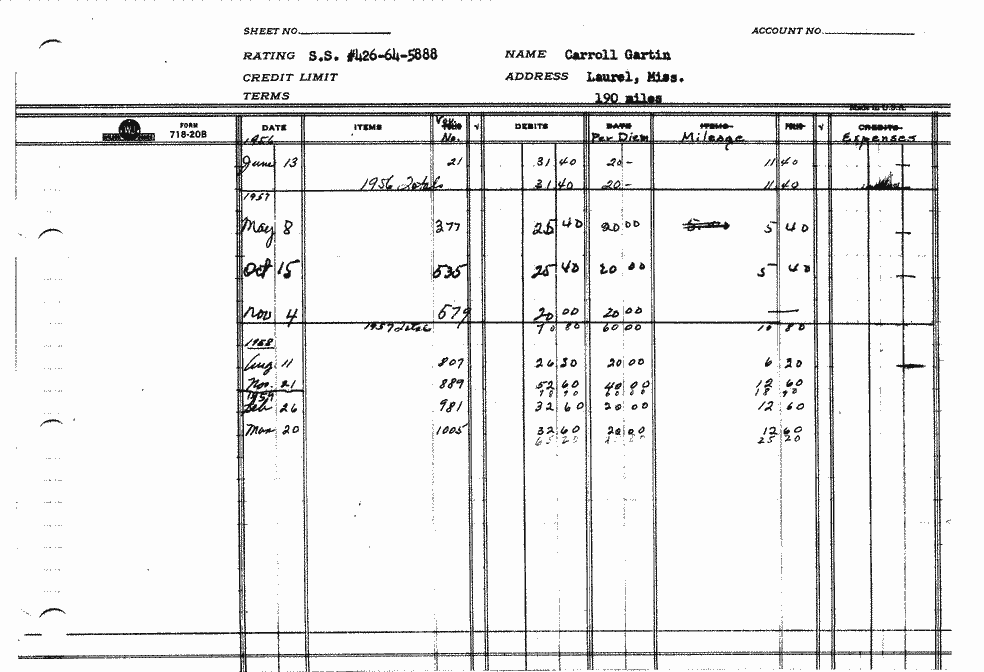 SHEET NO. ACCOUNT NO.
RATING S.S. #426-64-5888 NAME Carroll Gartin
CREDIT LIMIT ADDRESS Laurel, Miss.
TERMS 190 miles
MADE IN U.S.A.
FORM 718-20B DATE ITEMS Vou. No. √ DEBITS DATE Per Diem ITEMS Mileage FOLIO √ CREDITS Expenses
1956
June 13 21 31 40 20 - 11 40 —
1956 Totals 31 40 20 - 11 40
1957
May 8 377 25 40 20 00 5 40 —
Oct 15 535 25 40 20 00 5 40 —
Nov 4 579 20 00 20 00 —
1957 Totals 70 80 60 00 10 80
1958
Aug 11 807 26 30 20 00 6 30 —
Nov. 21 889 52 60 40 00 12 60
78 90 60 00 18 90
1959
Feb 26 981 32 60 20 00 12 60
Mar 20 1005 32 60 20 00 12 60
65 20 25 20